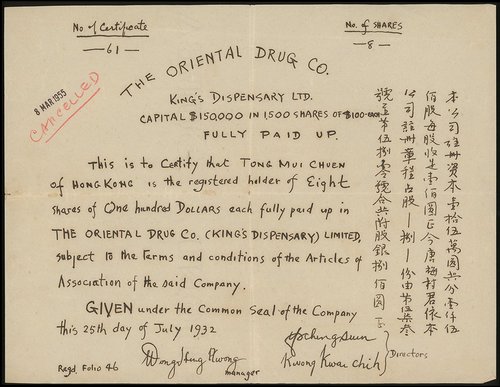 No of Certificate
— 61 —
No. of SHARES
— 8 —
8 MAR 1955
CANCELLED
THE ORIENTAL DRUG CO.
KING'S DISPENSARY LTD.
CAPITAL $150,000 IN 1,500 SHARES OF $100- EACH
FULLY PAID UP.
This is to Certify that TONG MUI CHUEN
of HONG KONG is the registered holder of Eight
shares of One hundred DOLLARS each fully paid up in
THE ORIENTAL DRUG CO. (KING'S DISPENSARY) LIMITED,
subject to the Terms and conditions of the Articles of
Association of the said Company.
GIVEN under the Common Seal of the Company
this 25th day of July 1932
本公司註冊資本壹拾伍萬圓共分壹仟伍
佰股每股收足壹佰圓正今唐梅村君依本
公司註冊章程占股—捌—份由第伍柒叁
號至第伍捌零號合共附股銀捌佰圓正
Regd. Folio 46
manager
Kwong Kwai Chih
Directors